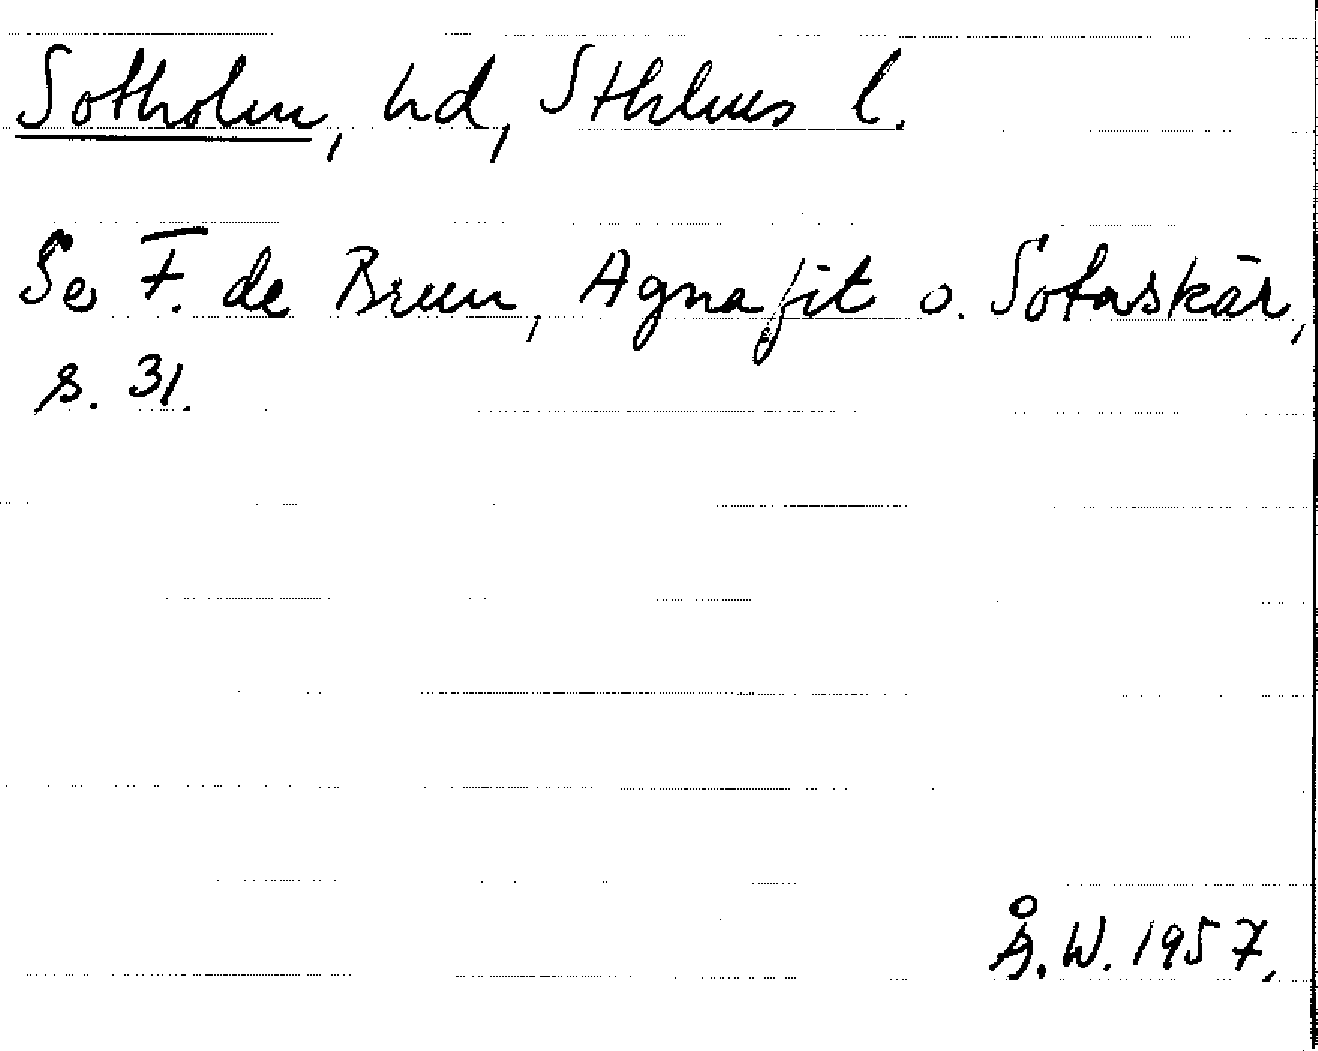 Sotholm, hd, Sthlms l.
Se F. de Brun, Agnafit o. Sotaskär,
s. 31.
Å.W. 1957.